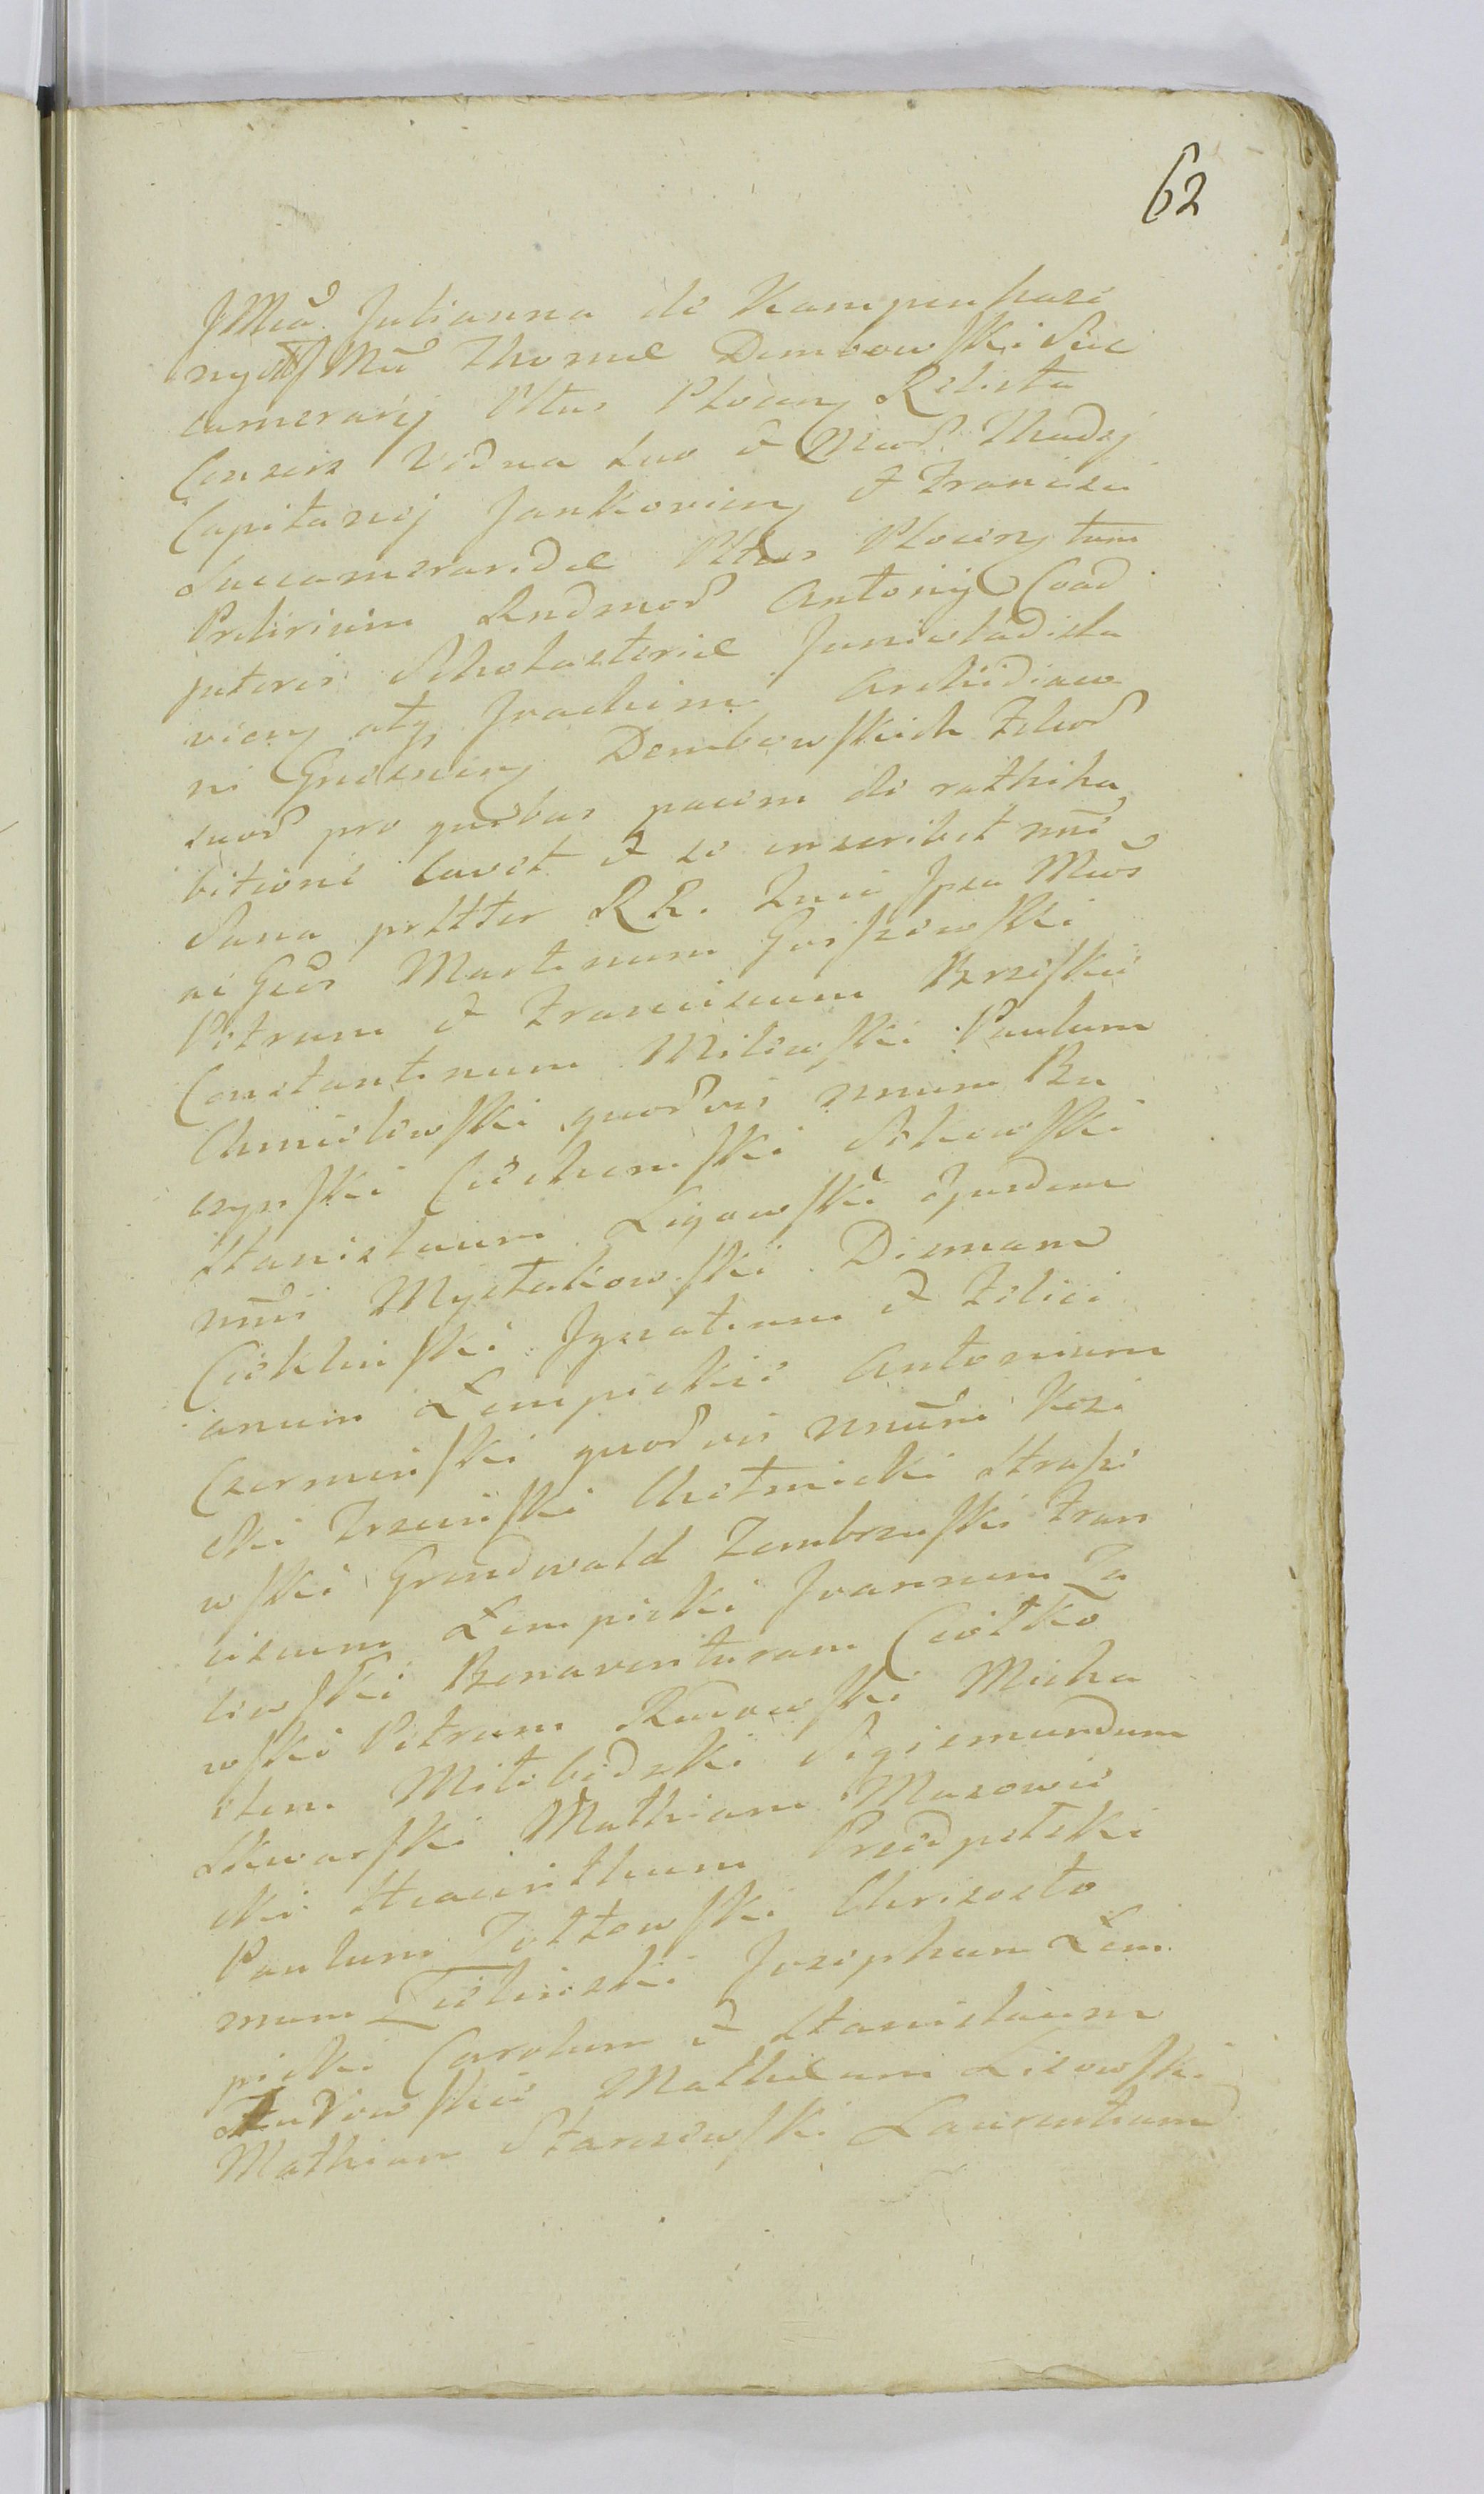 62
JMca Julianna de Kampenhazi
ny JMci Thomæ Dembowski Suc
camerarij Pltus Plocen Relicta
Consors Vidua suo et Mcior Thadej
Capitanej Jankovien et Francisci
Succameraridæ Pltus Plocen tum
Prelirium Rndmor Antonij Coad
jutoris Scholasteriæ Juniwladisla
vien atq Joachimi Archidiaco
ni Gneznen Dembowskich Filior
suor pro quibus pacem de rathiha
bitione cavet et se inscribet nne
Sana pnltter RR. Suis ipsa Mcos
ac Gcos Martinum Goszewski
Petrum et Franciscum Brzeskie
Constantinum Milewski Paulum
Chmielewski quorvis nnum Ra
czynski Ciechomski Sikowski
Stanislaum Ligowski ejusdem
nnis Mystkowski Diemam
Cieklinski Ignatium et Felici
anum Lempickie Antonium
Czerminski quorvis nnum Kosi
cki Trzcinski Chelmicki Strasze
wski Grendwald Zembrzuski Fran
ciscum Lempicki Joannem Za
liewski Bonaventuram Ciolko
wski Petrum Rucowski Micha
elem Milobedzki Sigismundum
Skwarski Mathiam Mazowie
cki Hiacinthum Przedpelski
Paulum Zoltowski Chrisosto
mum Zielinski Josephum Lem
picki Carolum et Stanislaum
Rudowskie Mathæum Lisowski
Mathiam Starczewski Laurentium